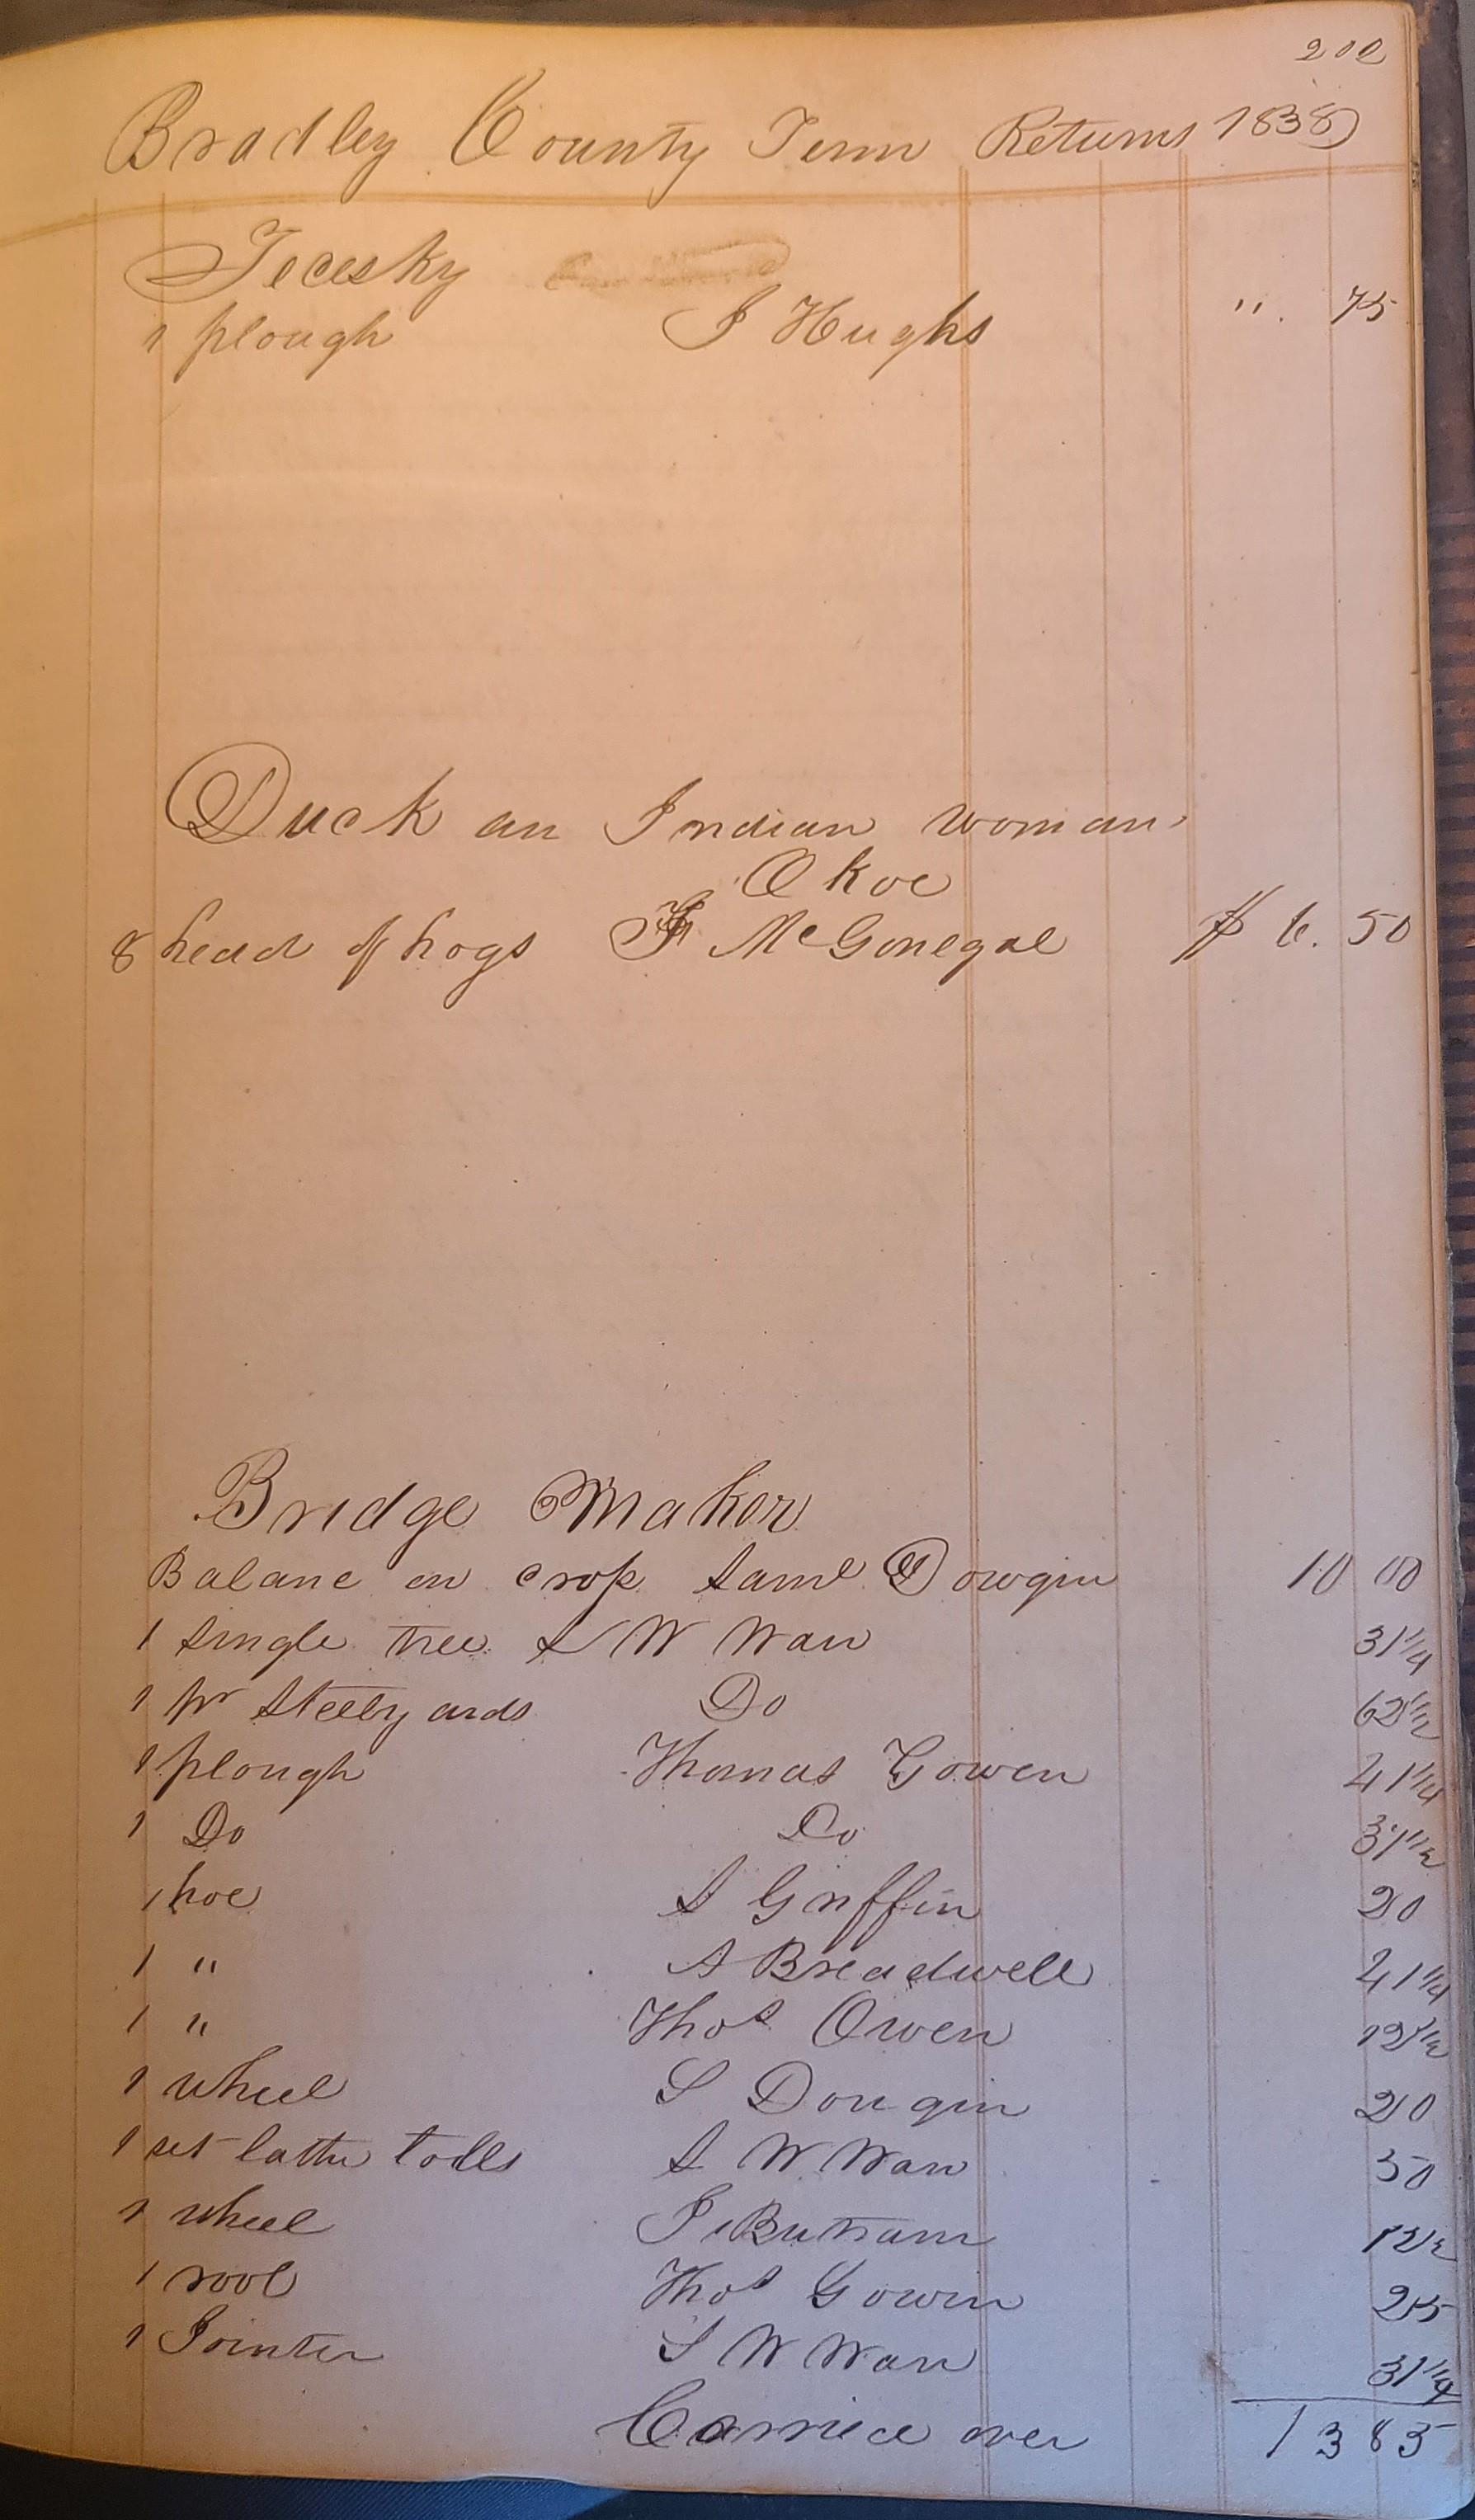 202
Bradley County Tenn Returns 1838
Tecesky
1 plough J Hughs " . 75
Duck an Indian woman
Okoe
8 head of hogs McGonegal $ 6. 50
Bridge Maker
Balanc on crop Saml Dowgin 10 00
1 single tree S W Wan 31 1/4
1 pr Steelyards Do 62 1/2
1 plough Thomas Gowen 41 1/4
1 Do Do 31 1/2
1 hoe S Griffin 20
1 " A Breadwell 41 1/4
1 " Thos Owen 12 1/2
1 wheel S Dougin 20
1 set lathe tolls S W Wan 50
1 wheel J Butram 12 1/2
1 rool Thos Gowin 25
1 Jointer S W Wan 31 1/4
Carried over 13 83